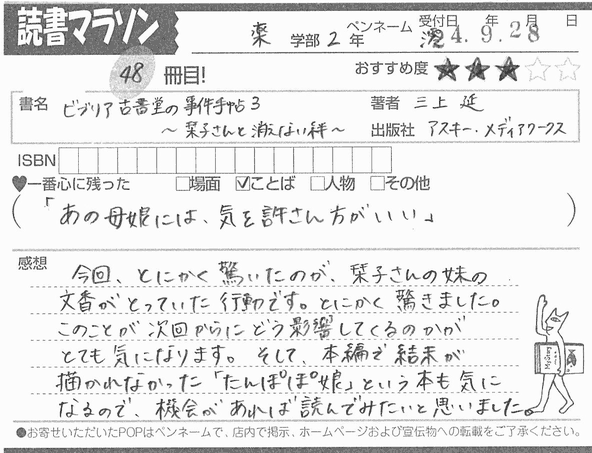 読書マラソン
薬 学部 2 年 ペンネーム 澪
受付日 年 月 日
24.9.28
48 冊目!
おすすめ度 ★★★☆☆
書名 ビブリア古書堂の事件手帖3
～栞子さんと消えない絆～
著者 三上 延
出版社 アスキー・メディアワークス
ISBN
♥一番心に残った □場面 ☑ことば □人物 □その他
(「あの母娘には、気を許さん方がいい」)
感想
今回、とにかく驚いたのが、栞子さんの妹の
文香がとっていた行動です。とにかく驚きました。
このことが次回からにどう影響してくるのかが
とても気になります。そして、本編で結末が
描かれなかった「たんぽぽ娘」という本も気に
なるので、機会があれば読んでみたいと思いました。
●お寄せいただいたPOPはペンネームで、店内で掲示、ホームページおよび宣伝物への転載をご了承ください。